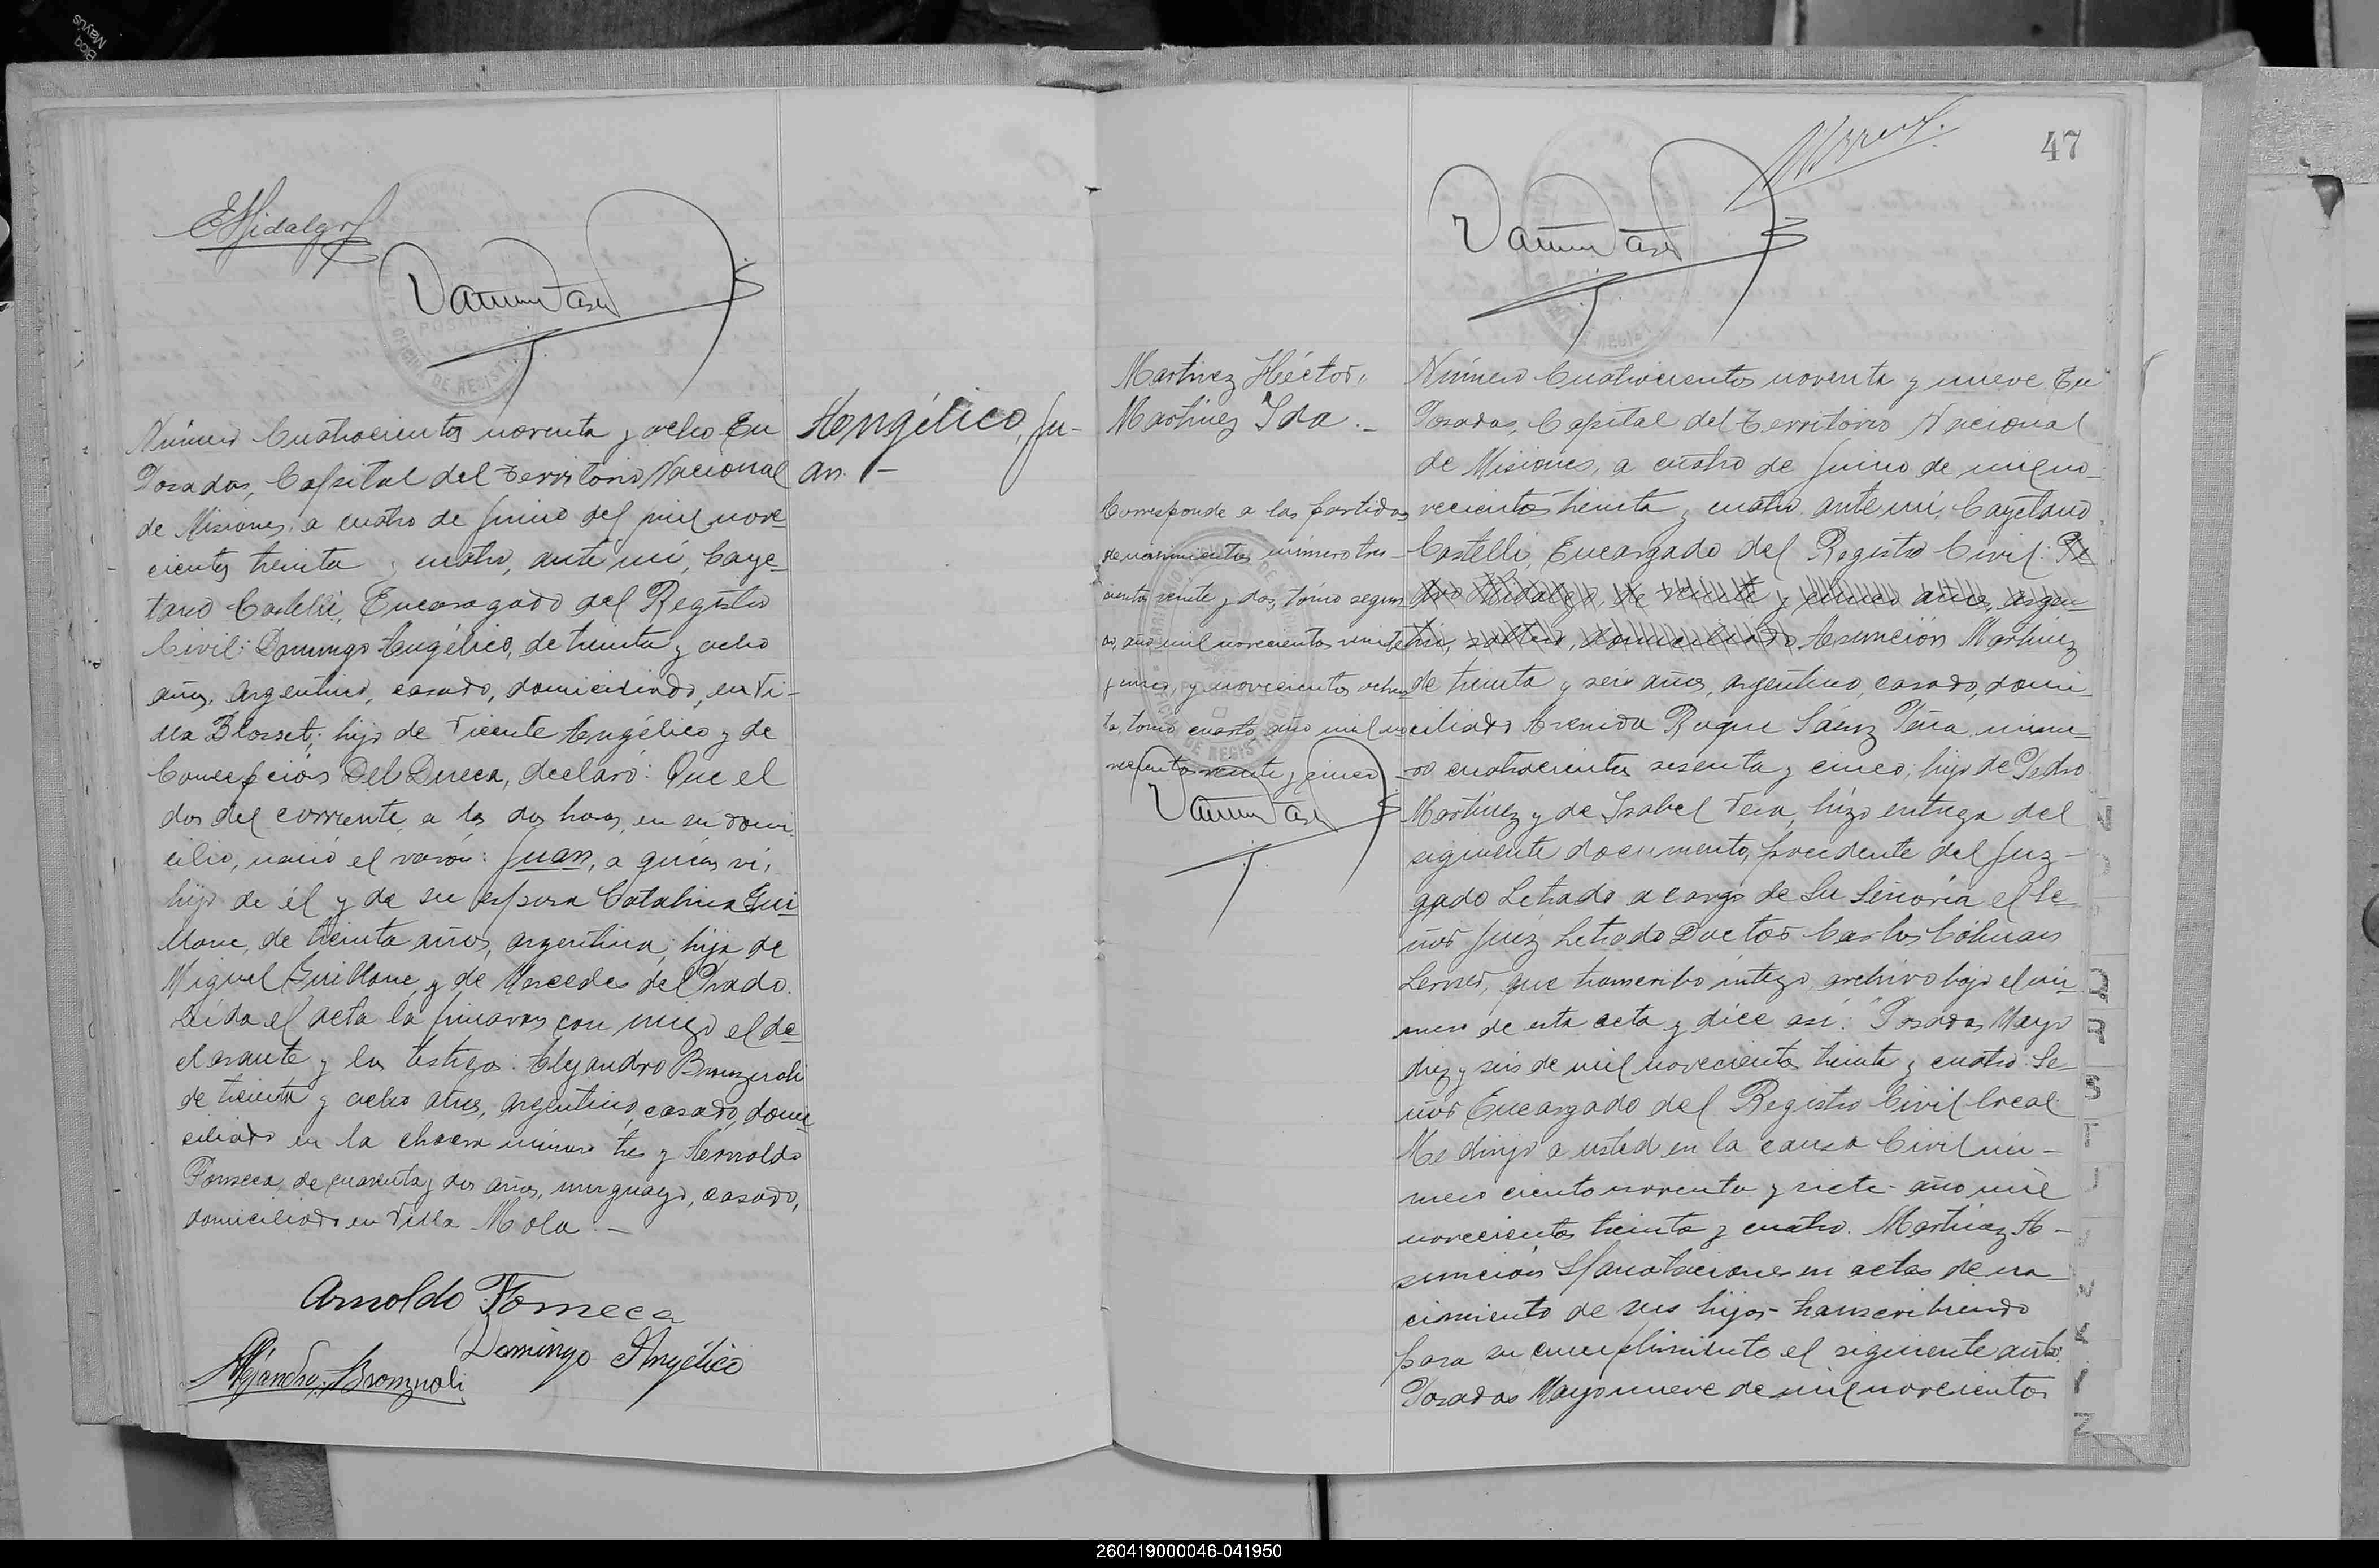 Bloq
Mayús
EHidalgo
POSADAS
OFICINA DE REGISTRO
Número Cuatrocientos noventa y ocho En
Posadas, Capital del Territorio Nacional
de Misiones, a cuatro de Junio del mil nove-
cientos treinta y cuatro, ante mí, Caye-
tano Castelli, Encargado del Registro
Civil: Domingo Angélico, de treinta y ocho
años, argentino, casado, domiciliado, en Vi-
lla Blosset; hijo de Vicente Angélico y de
Concepción Del Duca, declaró: Que el
dos del corriente, a las dos horas, en su domi-
cilio, nació el varón: Juan, a quien ví,
hijo de él y de su esposa Catalina Gui
llone, de treinta años, argentina; hija de
Miguel Guillone, y de Mercedes del Prado.
Leída el acta la firmaron con migo el de-
clarante y los testigos: Alejandro Bronzuoli
de treinta y ocho años, argentino, casado, domi-
ciliado en la chacra número tres y Arnoldo
Fonseca, de cuarenta y dos años, uruguayo, casado,
domiciliado en Villa Mola. —
Arnoldo Fonseca
Domingo Angélico
Alejandro Bronzuoli
Angélico, Ju-
an. —
47
Martinez Héctor,
Martinez Ida. —
Corresponde a las partidas
de nacimientos número tres-
cientos veinte y dos, tomo segun
do, año mil novecientos veinte
y uno, y novecientos ochen
ta, tomo cuarto, año mil no
vecientos veinte y cinco
Número Cuatrocientos noventa y nueve En
Posadas, Capital del Territorio Nacional
de Misiones, a cuatro de Junio de mil no-
vecientos treinta y cuatro, ante mí, Cayetano
Castelli, Encargado del Registro Civil: Pe
dro Hidalgo, de veinte y cinco años, argen
tino, soltero, domiciliado Asunción Martinez
de treinta y seis años, argentino, casado, domi-
ciliado Avenida Roque Sáenz Peña núme-
ro cuatrocientos sesenta y cinco; hijo de Pedro
Martínez y de Isabel Vera, hizo entrega del
siguiente documento, procedente del Juz-
gado Letrado a cargo de Su Señoría el Se-
ñor Juez Letrado Doctor Carlos Cólman
Lerner, que transcribo íntegro, archivo bajo el nú-
mero de esta acta y dice así: "Posadas Mayo
diez y seis de mil novecientos treinta y cuatro. Se-
ñor Encargado del Registro Civil local.
Me dirijo a usted en la causa Civil nú-
mero ciento noventa y siete - año mil
novecientos treinta y cuatro. Martínez A-
sunción S/anotaciones en actas de na-
cimiento de sus hijos - transcribiendo
para su cumplimiento el siguiente auto:
Posadas Mayo nueve de mil novecientos
260419000046-041950